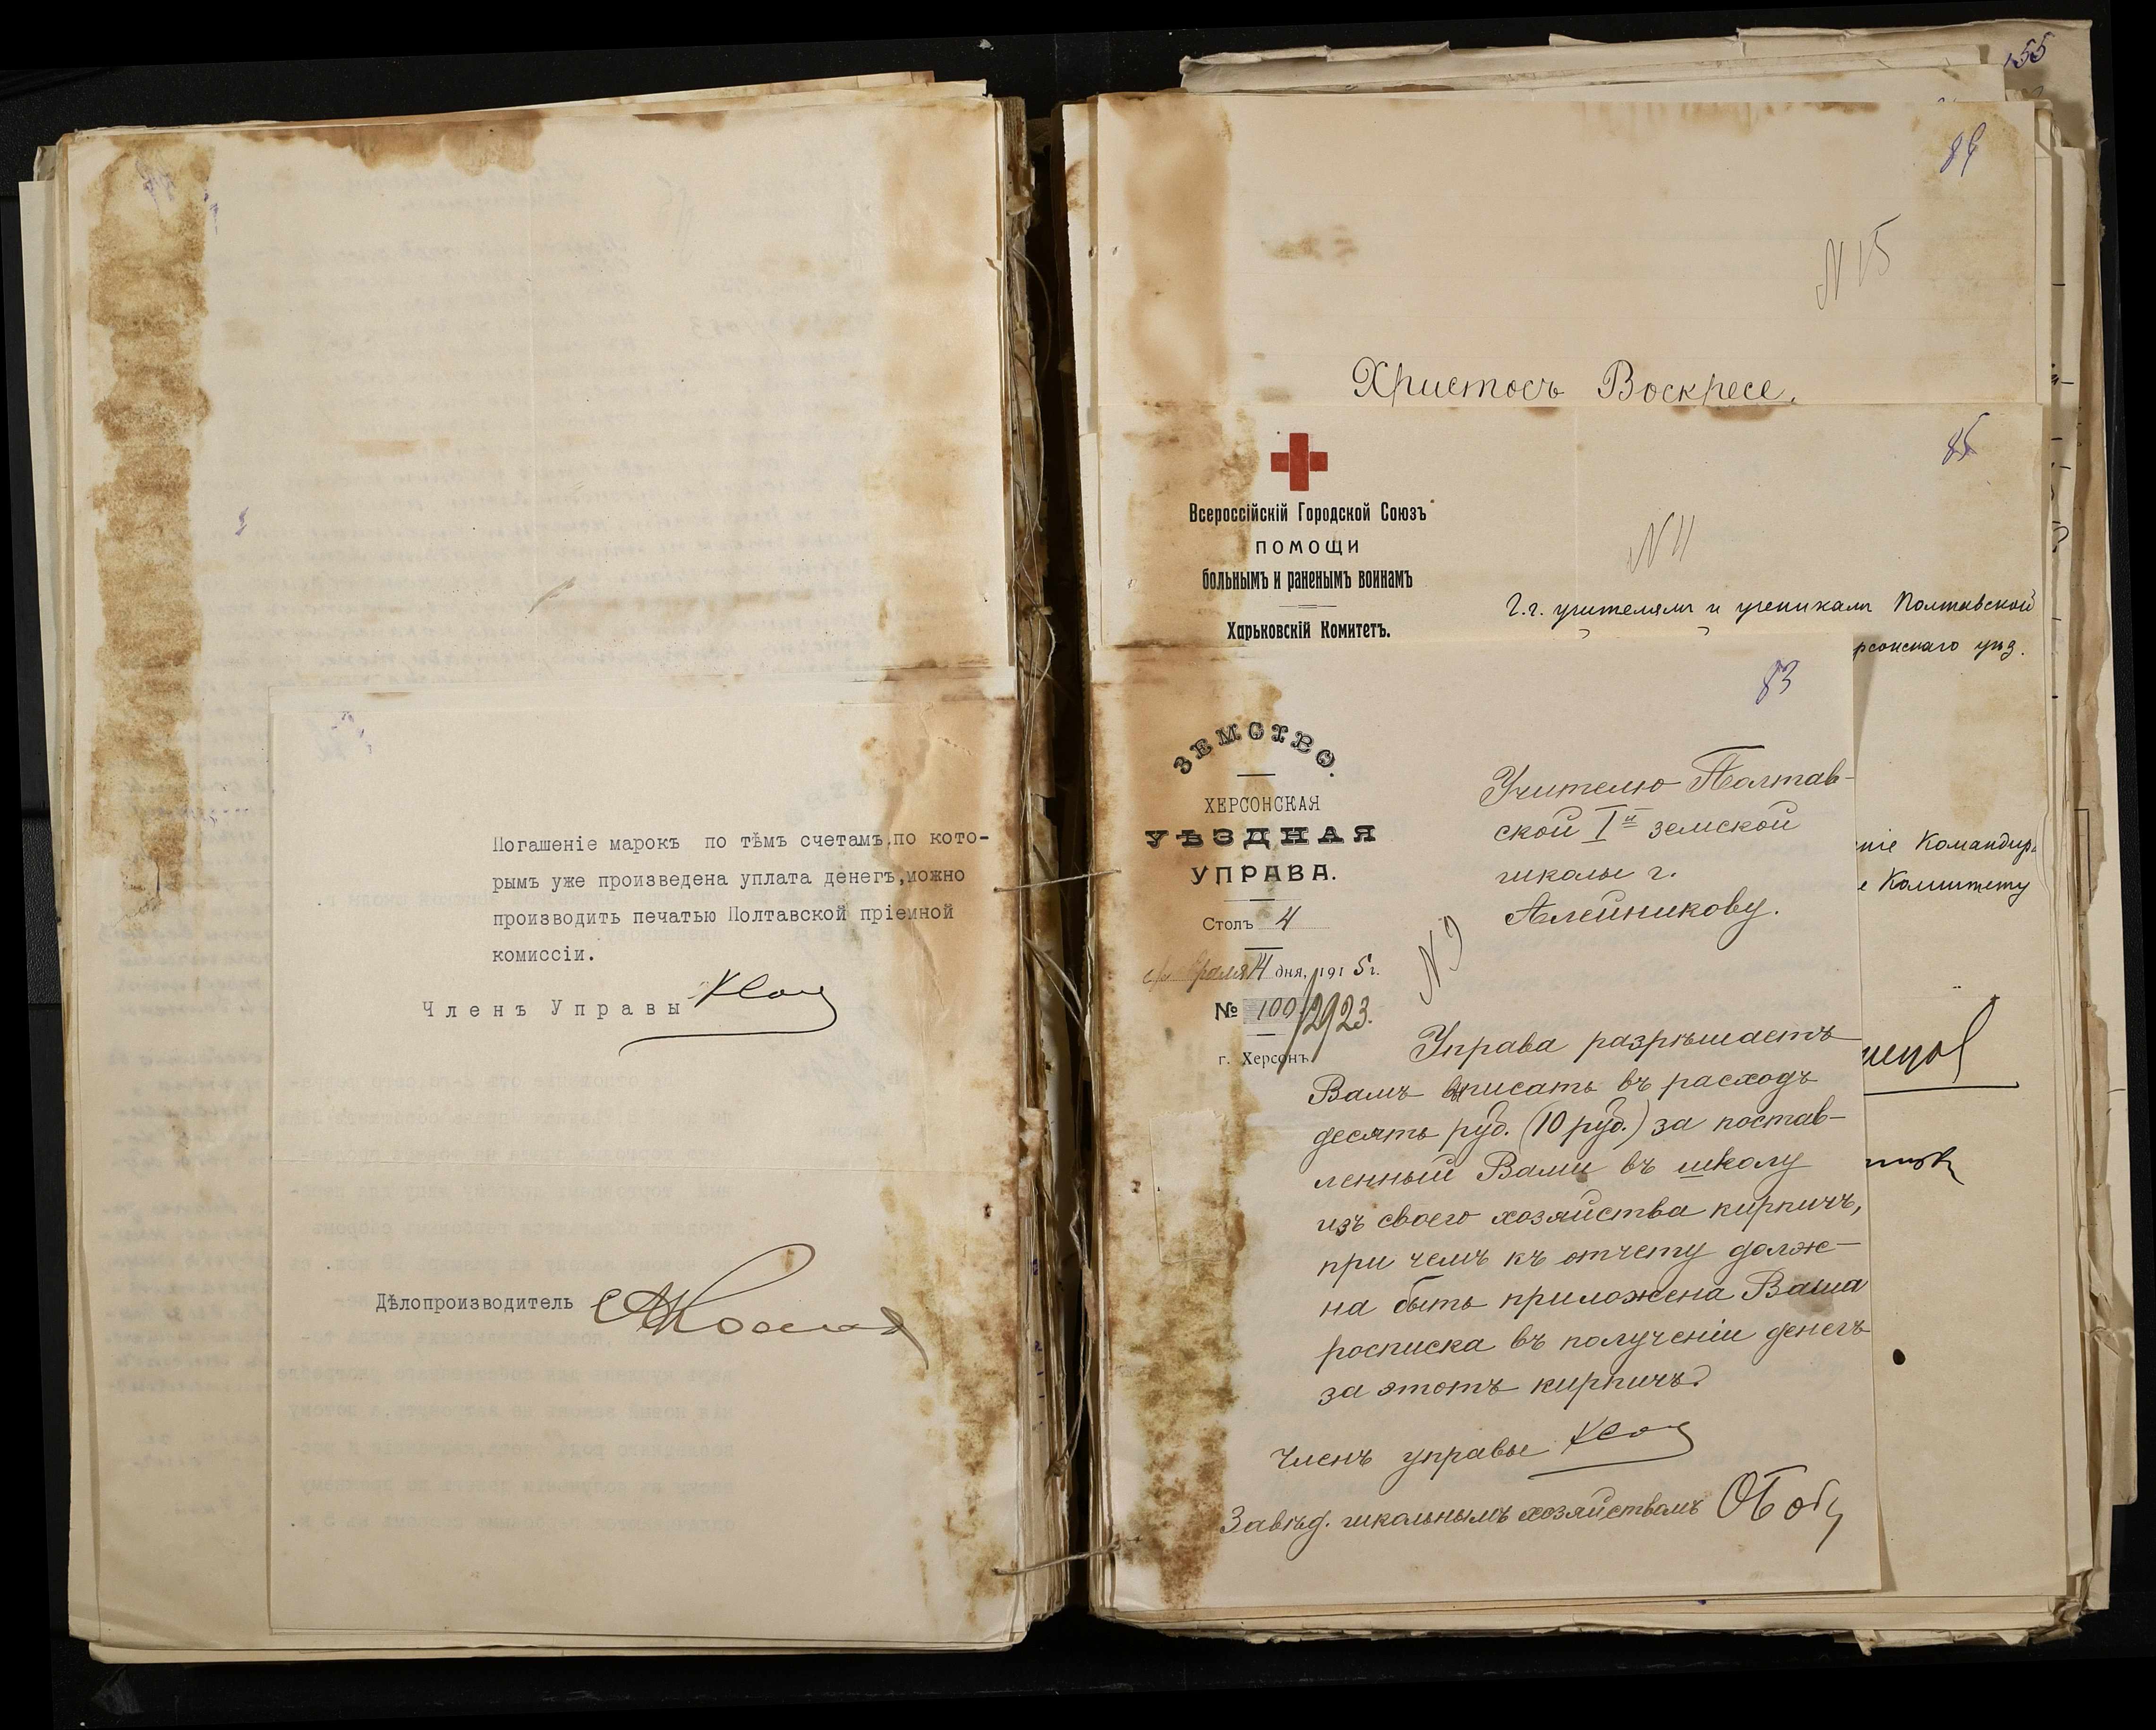 Погашеніе марокъ по тѣмъ счетамъ,по кото-
рымъ уже произведена уплата денегъ,можно
производить печатью Полтавской пріемной
комиссіи.
Членъ Управы
Дѣлопроизводитель
155
N 15
Христосъ Воскресе.
85
Всероссійскій Городской Союзъ
ПОМОЩИ
больнымъ и раненымъ воинамъ
Харьковскій Комитетъ.
N 11
Г.г. учителямъ и ученикамъ Полтавской
рсонскаго уѣз.
ніе Командир
е Комитету
83
ЗЕМСТВО.
ХЕРСОНСКАЯ
УѢЗДНАЯ
УПРАВА.
Столъ 4
февраля 4 дня, 1915 г.
№ 100/2923.
г. Херсонъ.
N 9
Учителю Полтав-
ской I й земской
школы г.
Алейникову.
Управа разрѣшаетъ
Вамъ вписать въ расходъ
десять руб. (10 руб.) за постав-
ленный Вами въ школу
изъ своего хозяйства кирпичъ,
при чемъ къ отчету долж-
на быть приложена Ваша
росписка въ полученіи денегъ
за этотъ кирпичъ.
Членъ управы
Завѣд. школьнымъ хозяйствомъ